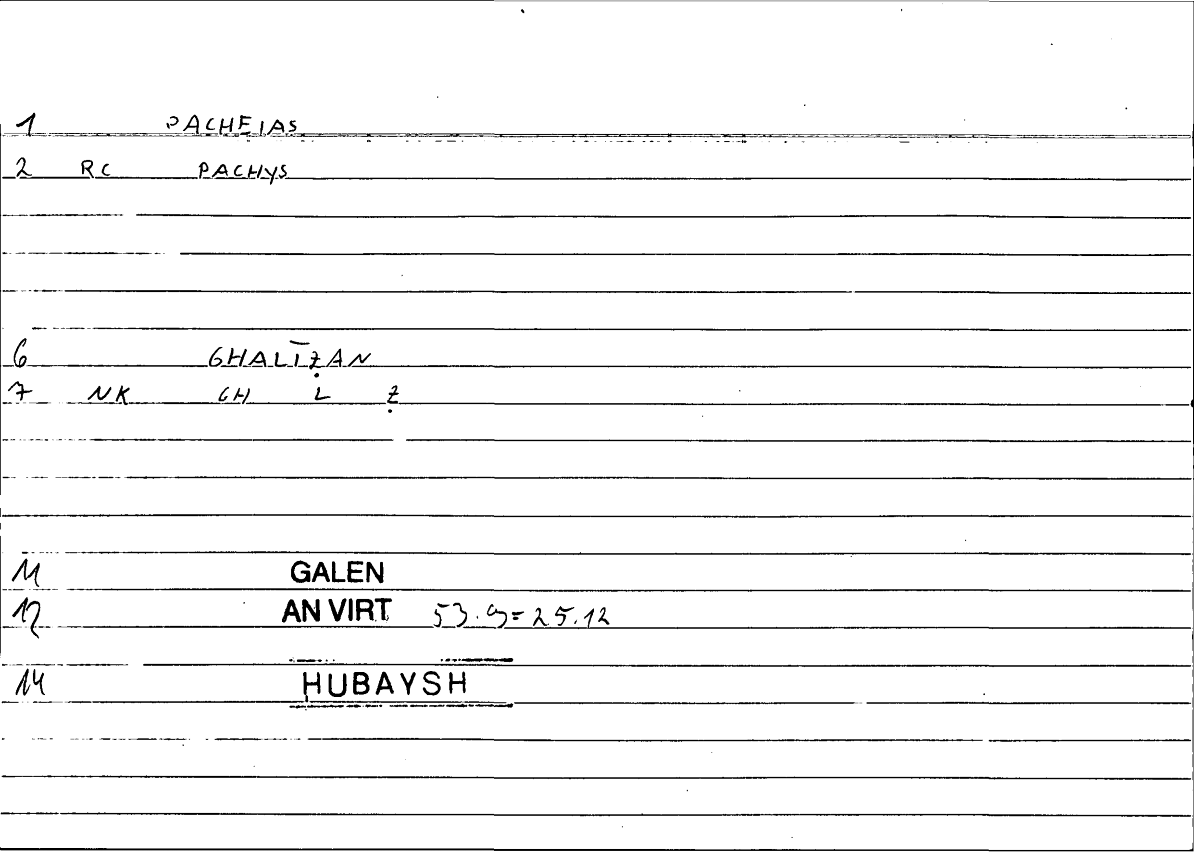 1 PACHEIAS
2 RC PACHYS
6 GHALĪẒAN
7 NK GH L Ẓ
11 GALEN
12 AN VIRT 53.9=25.12
14 ḤUBAYSH